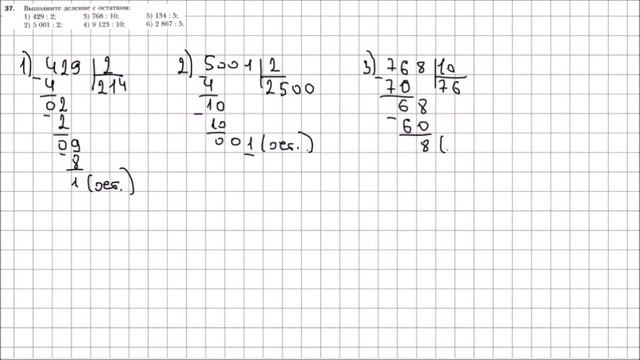 37. Выполните деление с остатком:
1) 429 : 2; 3) 768 : 10; 5) 134 : 5;
2) 5 001 : 2; 4) 9 123 : 10; 6) 2 867 : 5.
1) 429 2
- 4 214
02
- 2
09
- 8
1 (ост.)
2) 5001 2
- 4 2500
10
- 10
001 (ост.)
3) 768 10
- 70 76
68
- 60
8 (.